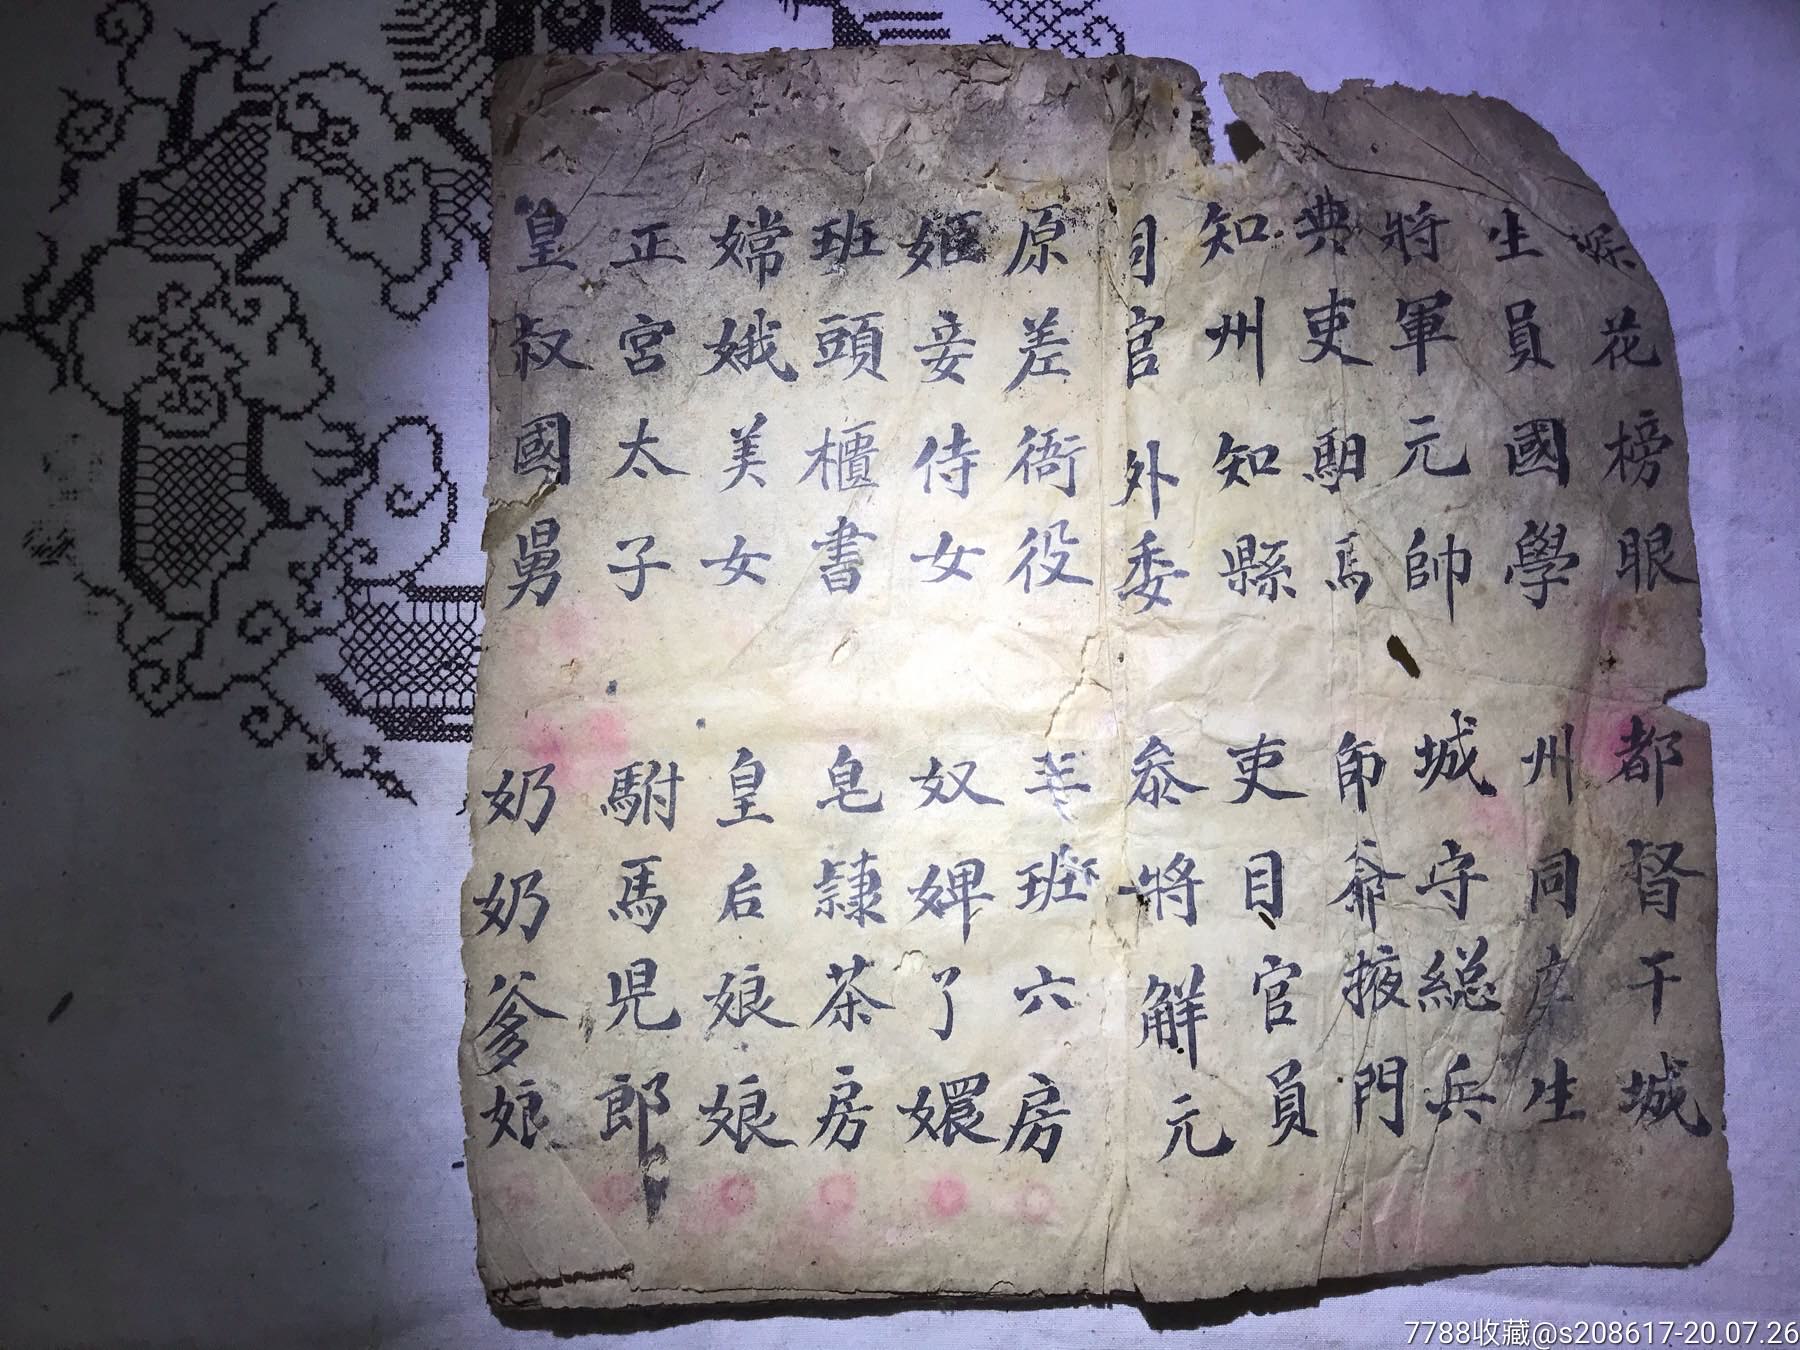 探花榜眼 都督干城
生員國學 州同庠生
將軍元帥 城守総兵
典吏馹馬 師爺掖門
知州知縣 吏目官員
司官外委 叅將觧元
原差衙役 三班六房
姬妾侍女 奴婢了嬛
班頭櫃書 皂隸茶房
嫦娥美女 皇后娘娘
正宮太子 駙馬児郎
皇叔國舅 奶奶爹娘
7788收藏@s208617-20.07.26